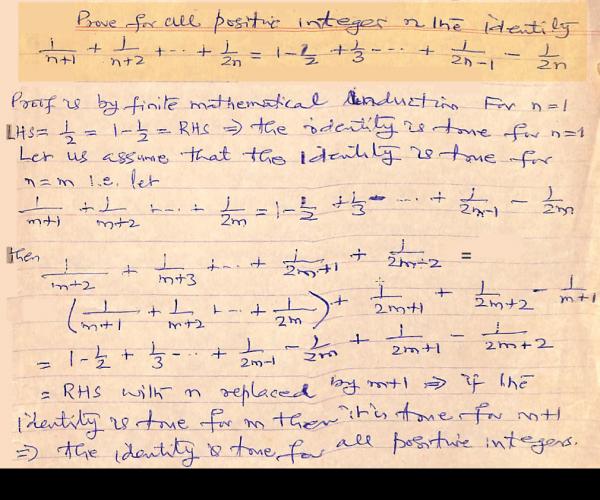 Prove for all positive integer n the identity
1/(n+1) + 1/(n+2) + ... + 1/2n = 1 - 1/2 + 1/3 - ... + 1/(2n-1) - 1/2n
Proof is by finite mathematical induction For n=1
LHS = 1/2 = 1 - 1/2 = RHS ⇒ the identity is true for n=1
Let us assume that the identity is true for
n = m i.e. let
1/(m+1) + 1/(m+2) + ... + 1/2m = 1 - 1/2 + 1/3 - ... + 1/(2m-1) - 1/2m
then 1/(m+2) + 1/(m+3) + ... + 1/(2m+1) + 1/(2m+2) =
(1/(m+1) + 1/(m+2) + ... + 1/2m) + 1/(2m+1) + 1/(2m+2) - 1/(m+1)
= 1 - 1/2 + 1/3 - ... + 1/(2m-1) - 1/2m + 1/(2m+1) - 1/(2m+2)
= RHS with n replaced by m+1 ⇒ if the
identity is true for m then it is true for m+1
⇒ the identity is true for all positive integers.